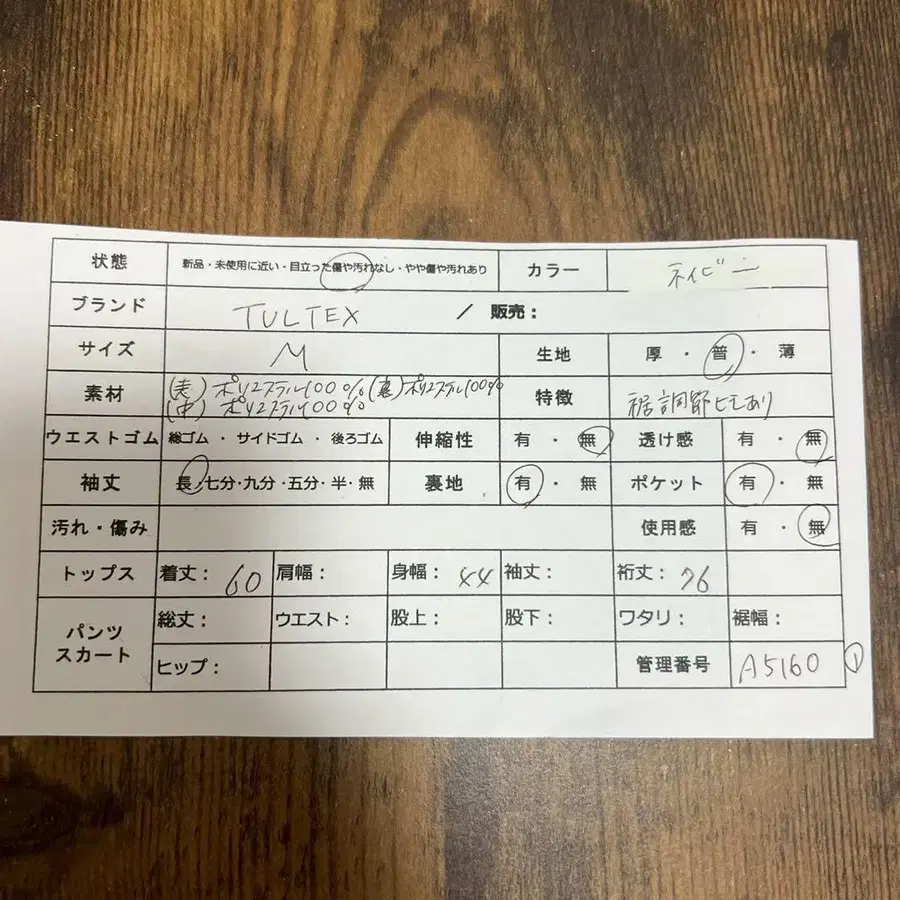 状態 新品・未使用に近い・目立った傷や汚れなし・やや傷や汚れあり カラー ネイビー
ブランド TULTEX / 販売：
サイズ M 生地 厚・普・薄
素材 (表)ポリエステル100%(裏)ポリエステル100%
(中)ポリエステル100% 特徴 裾調節ヒモあり
ウエストゴム 総ゴム・サイドゴム・後ろゴム 伸縮性 有・無 透け感 有・無
袖丈 長・七分・九分・五分・半・無 裏地 有・無 ポケット 有・無
汚れ・傷み 使用感 有・無
トップス 着丈：60 肩幅： 身幅：44 袖丈： 裄丈：76
パンツ スカート 総丈： ウエスト： 股上： 股下： ワタリ： 裾幅：
ヒップ： 管理番号 A5160 ①